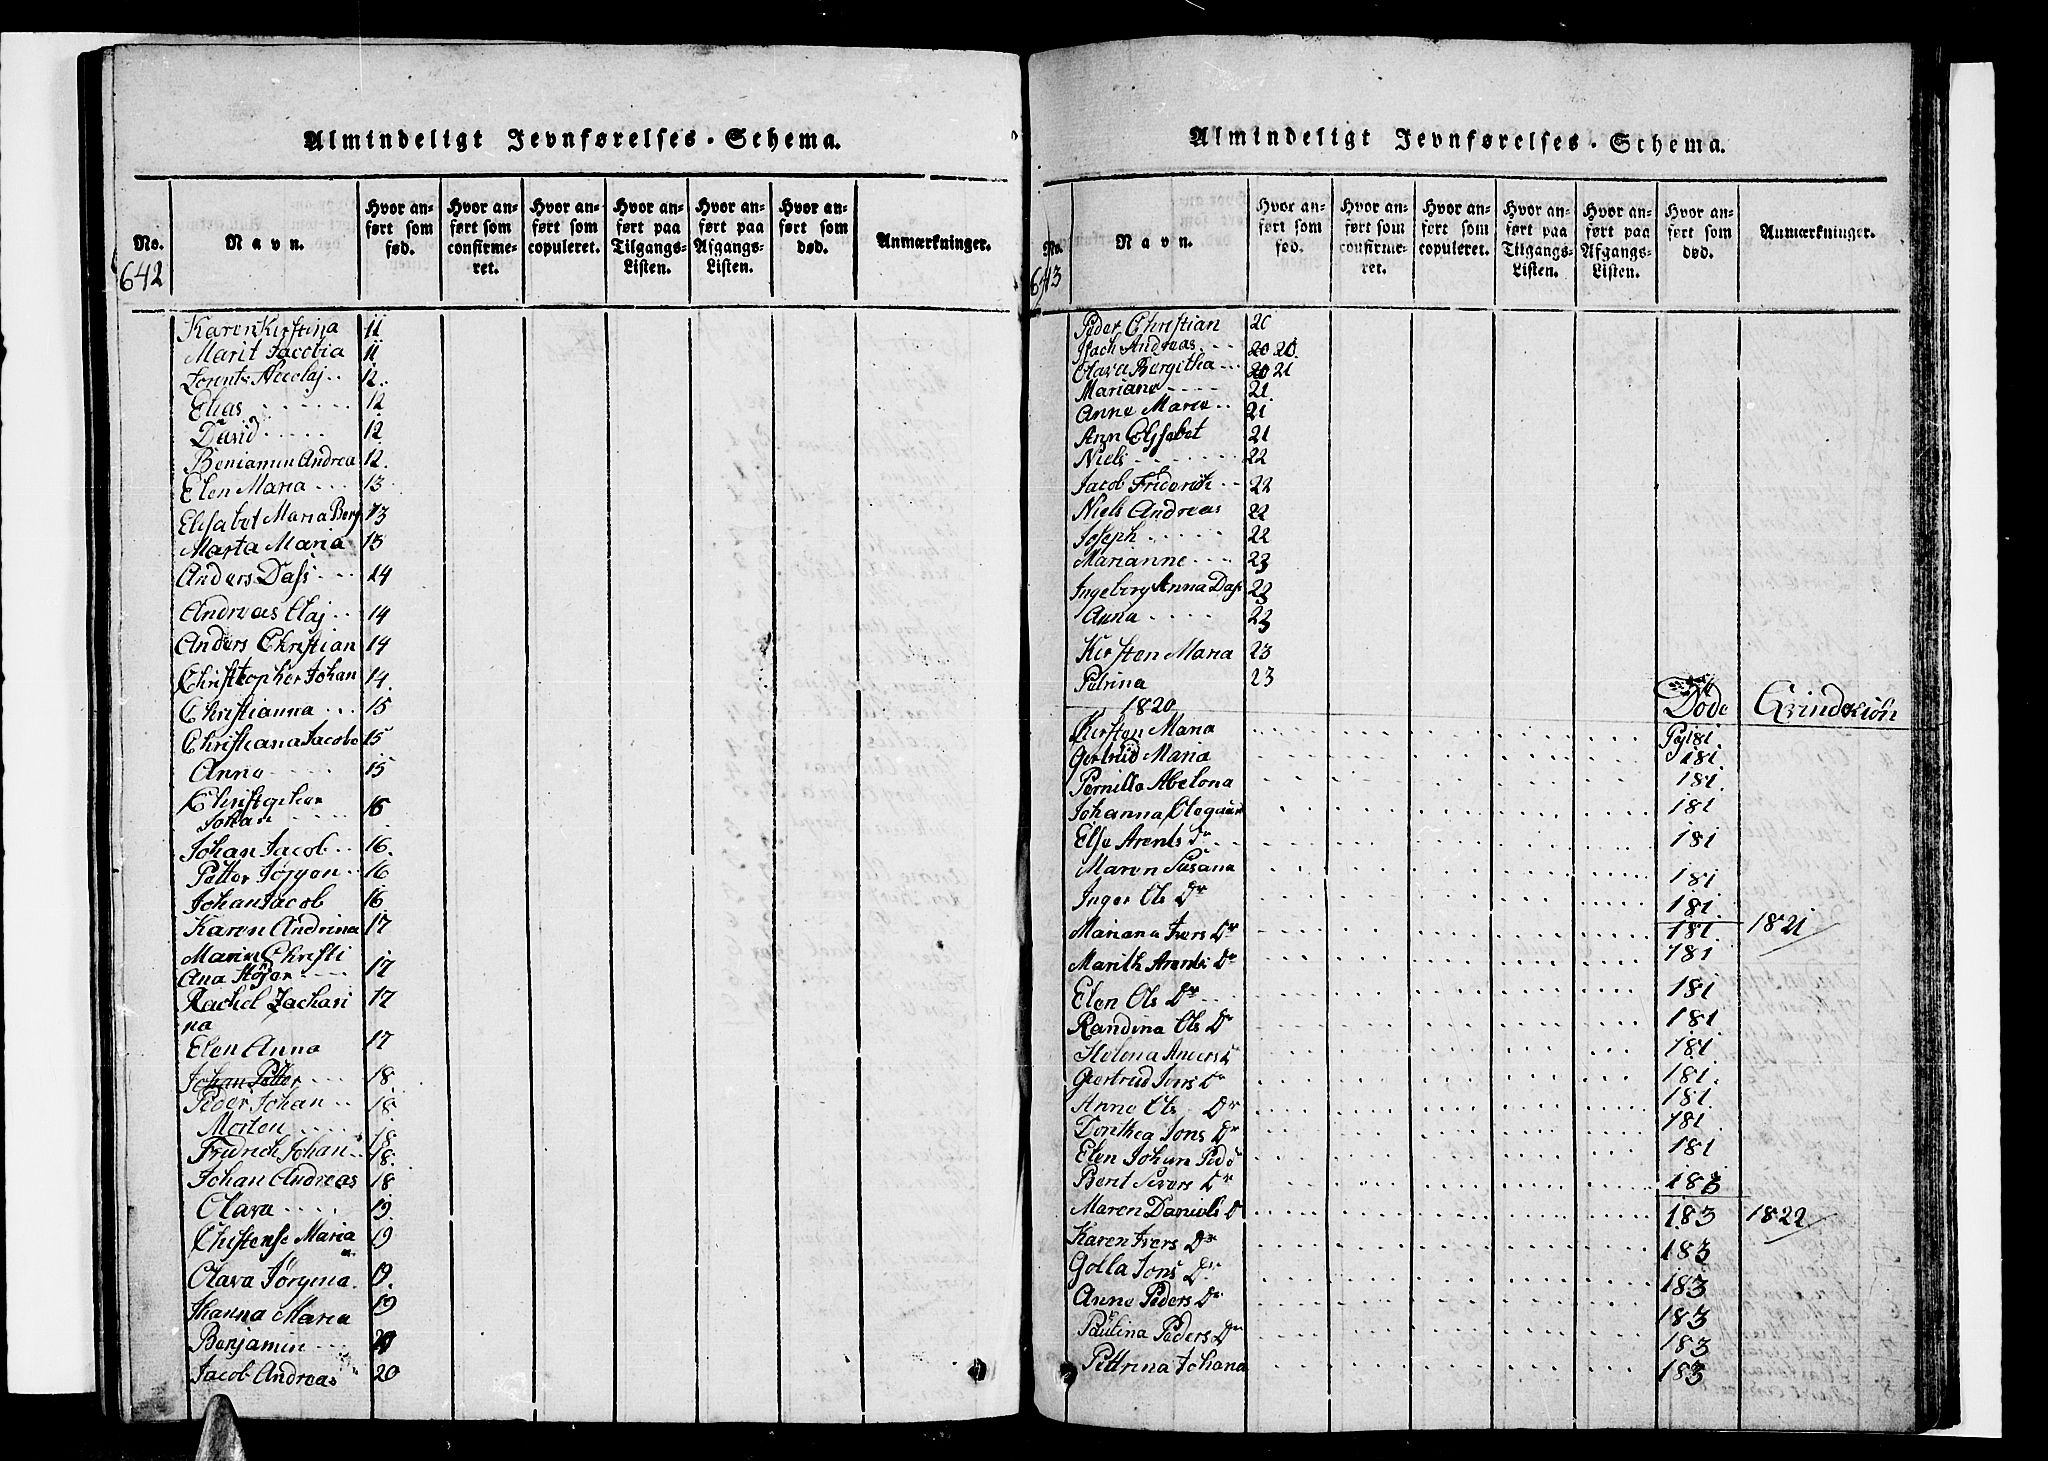 Almindeligt Jevnførelses-Schema.
No.
Navn.
Hvor an-
ført som
fød.
Hvor an-
ført som
confirme-
ret.
Hvor an-
ført som
copuleret.
Hvor an-
ført paa
Tilgangs-
Listen.
Hvor an-
ført paa
Afgangs-
Listen.
Hvor an-
ført som
død.
Anmærkninger.
642
Karen Kirstina 11
Marit Jacobia 11
Lorents Nicolaj 12
Elias 12
David 12
Beniamin Andrea 12.
Elen Maria 13
Elisabet Maria Berg 13
Marta Maria 13
Anders Dass 14
Andreas Olaj 14
Anders Christian 14
Christopher Johan 14.
Christianna 15
Christiana Jacobe 15
Anne 15
Christopher
Johan 16
Johan Jacob 16.
Petter Jørgen 16
Johan Jacob 16
Karen Andrina 17
Maren Christi
Ana Høyer 17
Rachel Zachari 17
na
Elen Anna 17
Johan Petter 18
Peder Johan 18
Morten 18
Fredrich Johan 18.
Johan Andreas 18
Olava 19
Christense Maria 19
Olava Jørgina 19.
Jhanna Maria 19
Benjamin 20
Jacob Andreas 20
Almindeligt Jevnførelses-Schema.
No.
Navn.
Hvor an-
ført som
fød.
Hvor an-
ført som
confirme-
ret.
Hvor an-
ført som
copuleret.
Hvor an-
ført paa
Tilgangs-
Listen.
Hvor an-
ført paa
Afgangs-
Listen.
Hvor an-
ført som
død.
Anmærkninger.
643
Peder Christian 20
Isach Andreas 20 20
Olava Bergitha 20 21
Mariane 21
Anne Marie 21
Ann Elssebet 21
Niels 22
Jacob Friderich 22
Niels Andreas 22
Joseph 22
Marianne 23
Ingeborg Anna Dass 23
Anna 23
Kirsten Maria 23
Petrina 23
1820 Døde Qvindekiøn
Kirsten Maria Pag 181
Gertrud Maria 181
Pernille Abelona 181
Johanna Olegaard 181
Else Arents Dr 181
Maren Susana 181
Inger Ols Dr 181
Mariana Ivers Dr 181 1821
Marith Arents Dr 181
Elen Ols Dr 181
Randina Ols Dr 181
Helena Anders D 181
Gertrud Jens Dr 181
Anne Ols Dr 181
Dorthea Jons Dr 181
Elen Johan Ped 181
Berit Sivers Dr 183
Maren Daniels D 183 1822
Karen Ivers Dr 183
Golla Jons Dr 183
Anne Peders Dr 183
Paulina Peders Dr 183
Pettrina Johana 183